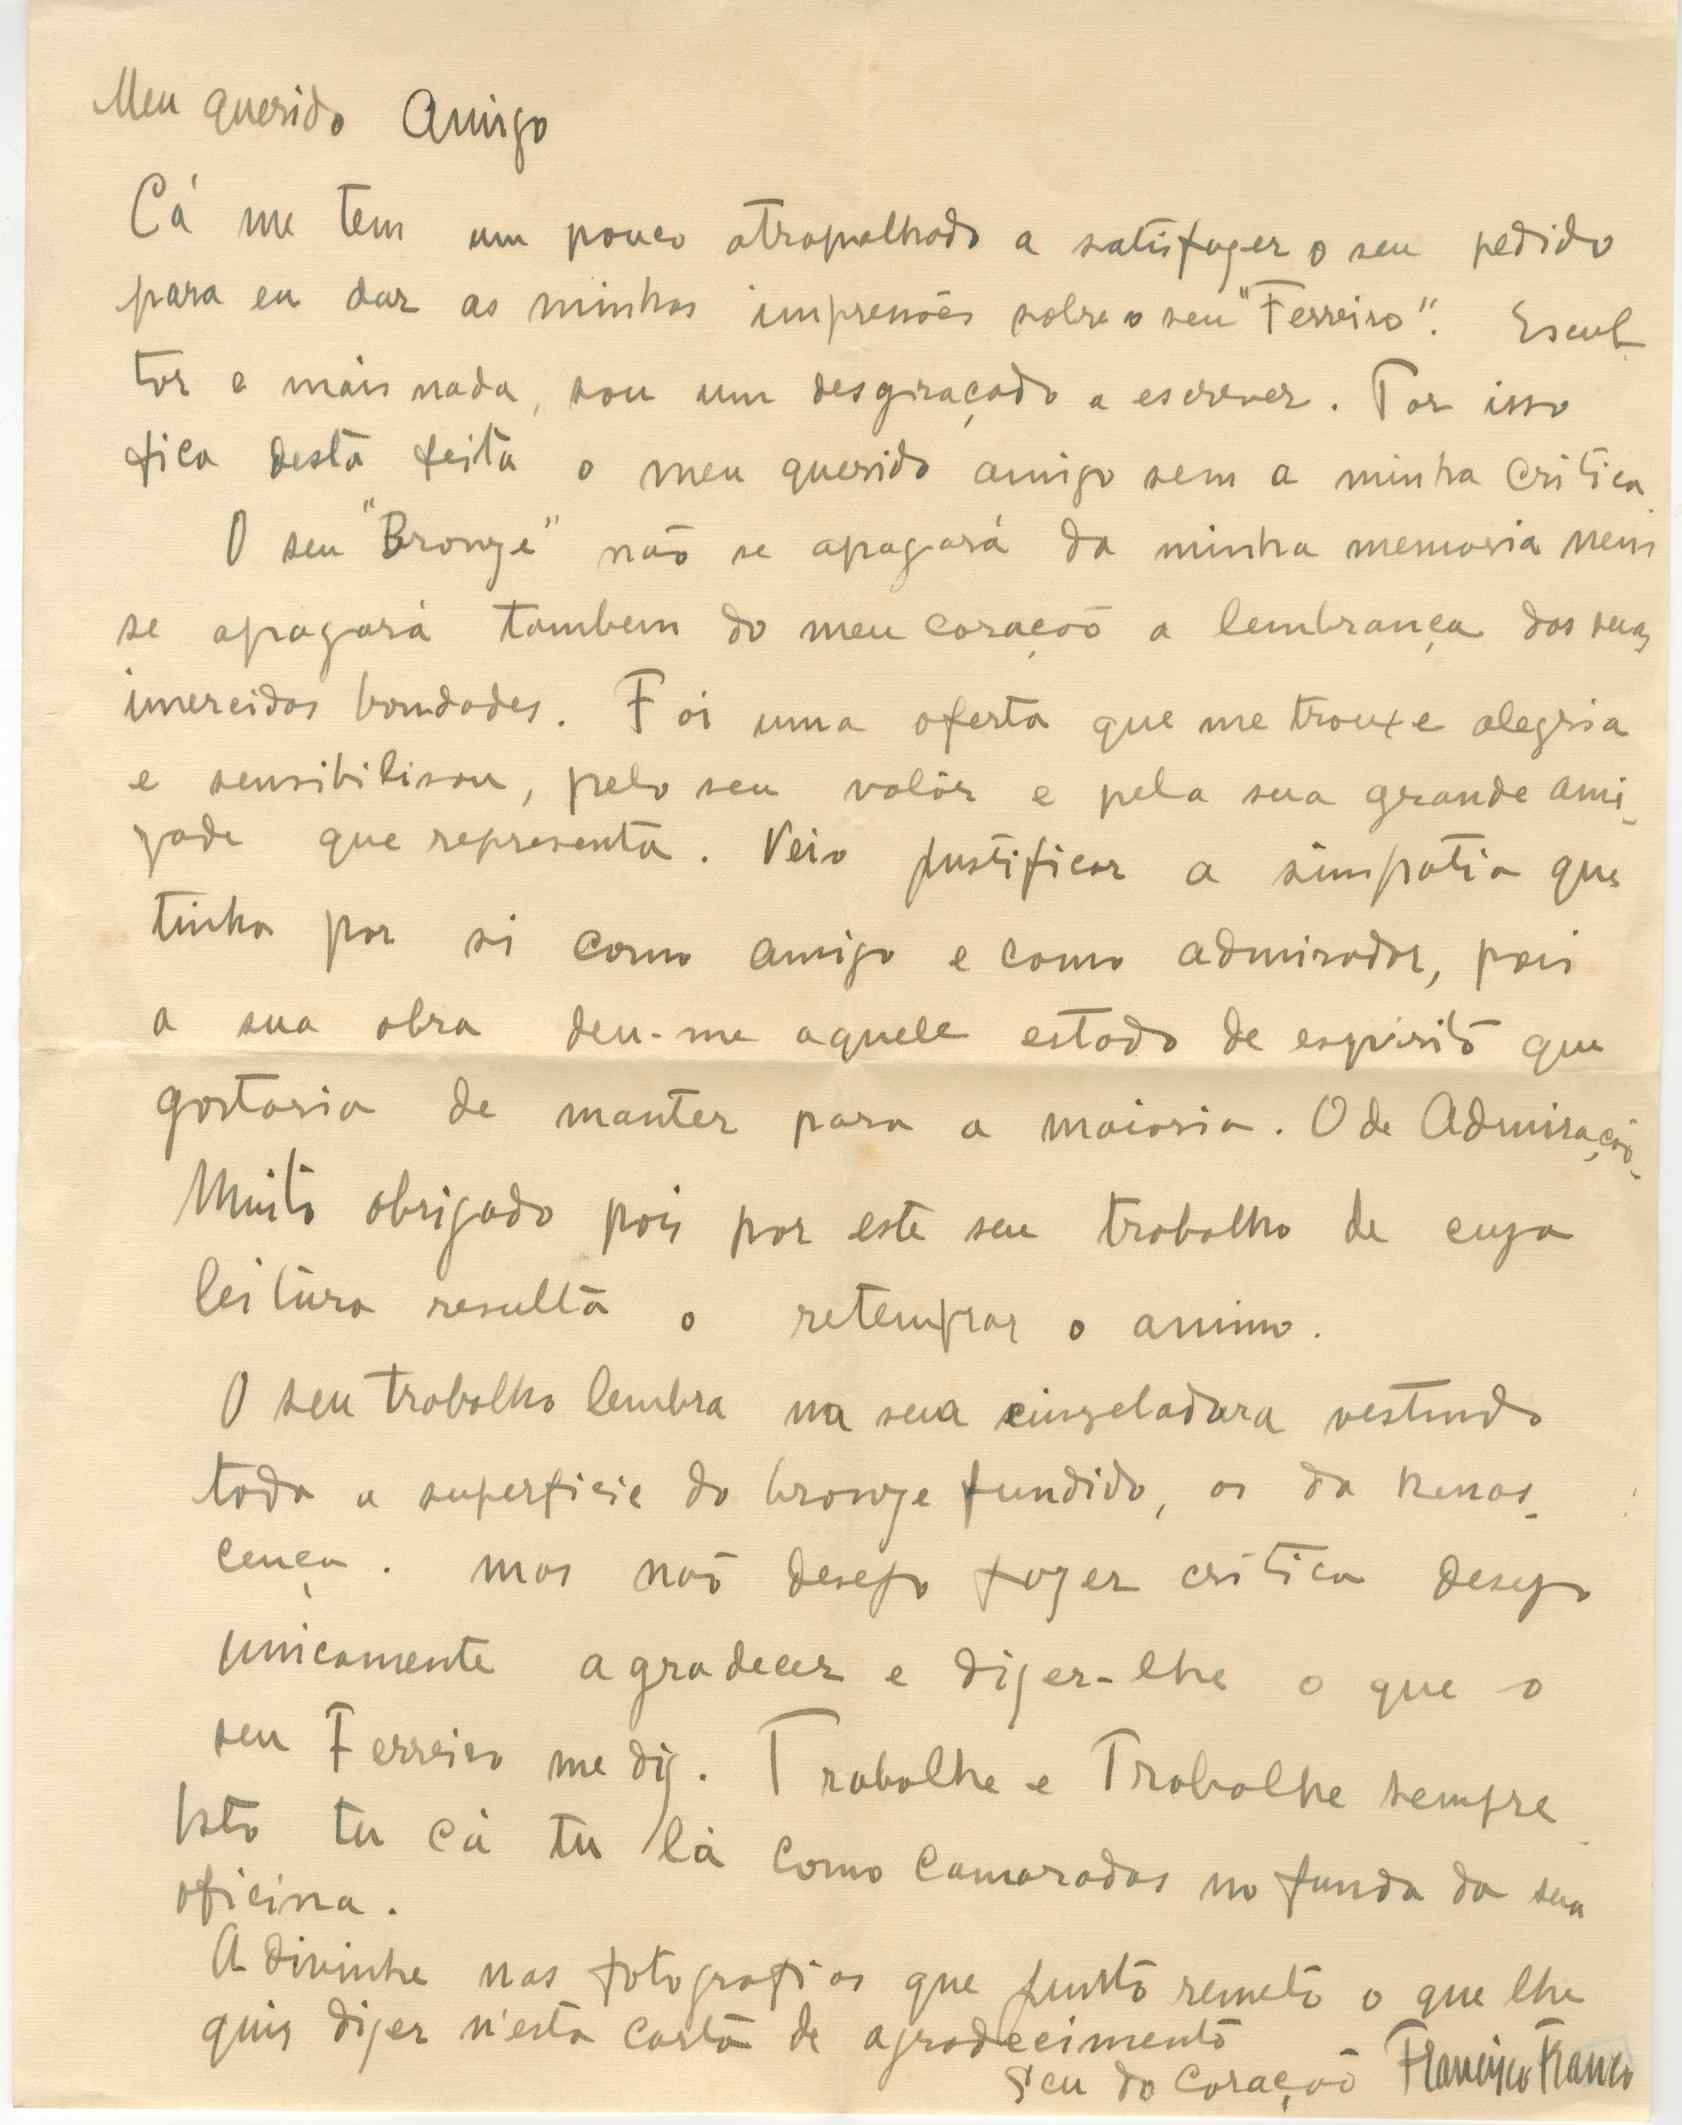 Meu querido Amigo
Cá me tem um pouco atrapalhado a satisfazer o seu pedido
para eu dar as minhas impressões sobre o seu "Ferreiro". Escul-
tor e mais nada, sou um desgraçado a escrever. Por isso
fica desta feita o meu querido amigo sem a minha critica
O seu "Bronze" não se apagará da minha memoria nem
se apagará tambem do meu coração a lembrança das suas
imerecidas bondades. Foi uma oferta que me trouxe alegria
e sensibilisou, pelo seu valôr e pela sua grande ami-
zade que representa. Veio justificar a simpatia que
tinha por si como amigo e como admirador, pois
a sua obra deu-me aquele estado de espirito que
gostaria de manter para a maioria. O de Admiração.
Muito obrigado pois por este seu trabalho de cuja
leitura resulta o retemprar o animo.
O seu trabalho lembra na sua cinzeladura vestindo
toda a superficie do bronze fundido, os da Renas-
cença. mas não desejo fazer critica desejo
unicamente agradecer e dizer-lhe o que o
seu Ferreiro me diz. Trabalhe e Trabalhe sempre
Isto tu cá tu lá como camaradas no funda da sua
oficina.
Adivinhe nas fotografias que junto remeto o que lhe
quis dizer n'esta carta de agradecimento
Seu do coração Francisco Franco